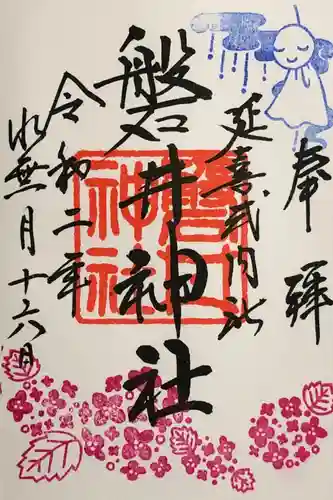 奉拝
延喜式内社
磐井神社
令和二年
水無月十六日
磐井
神社